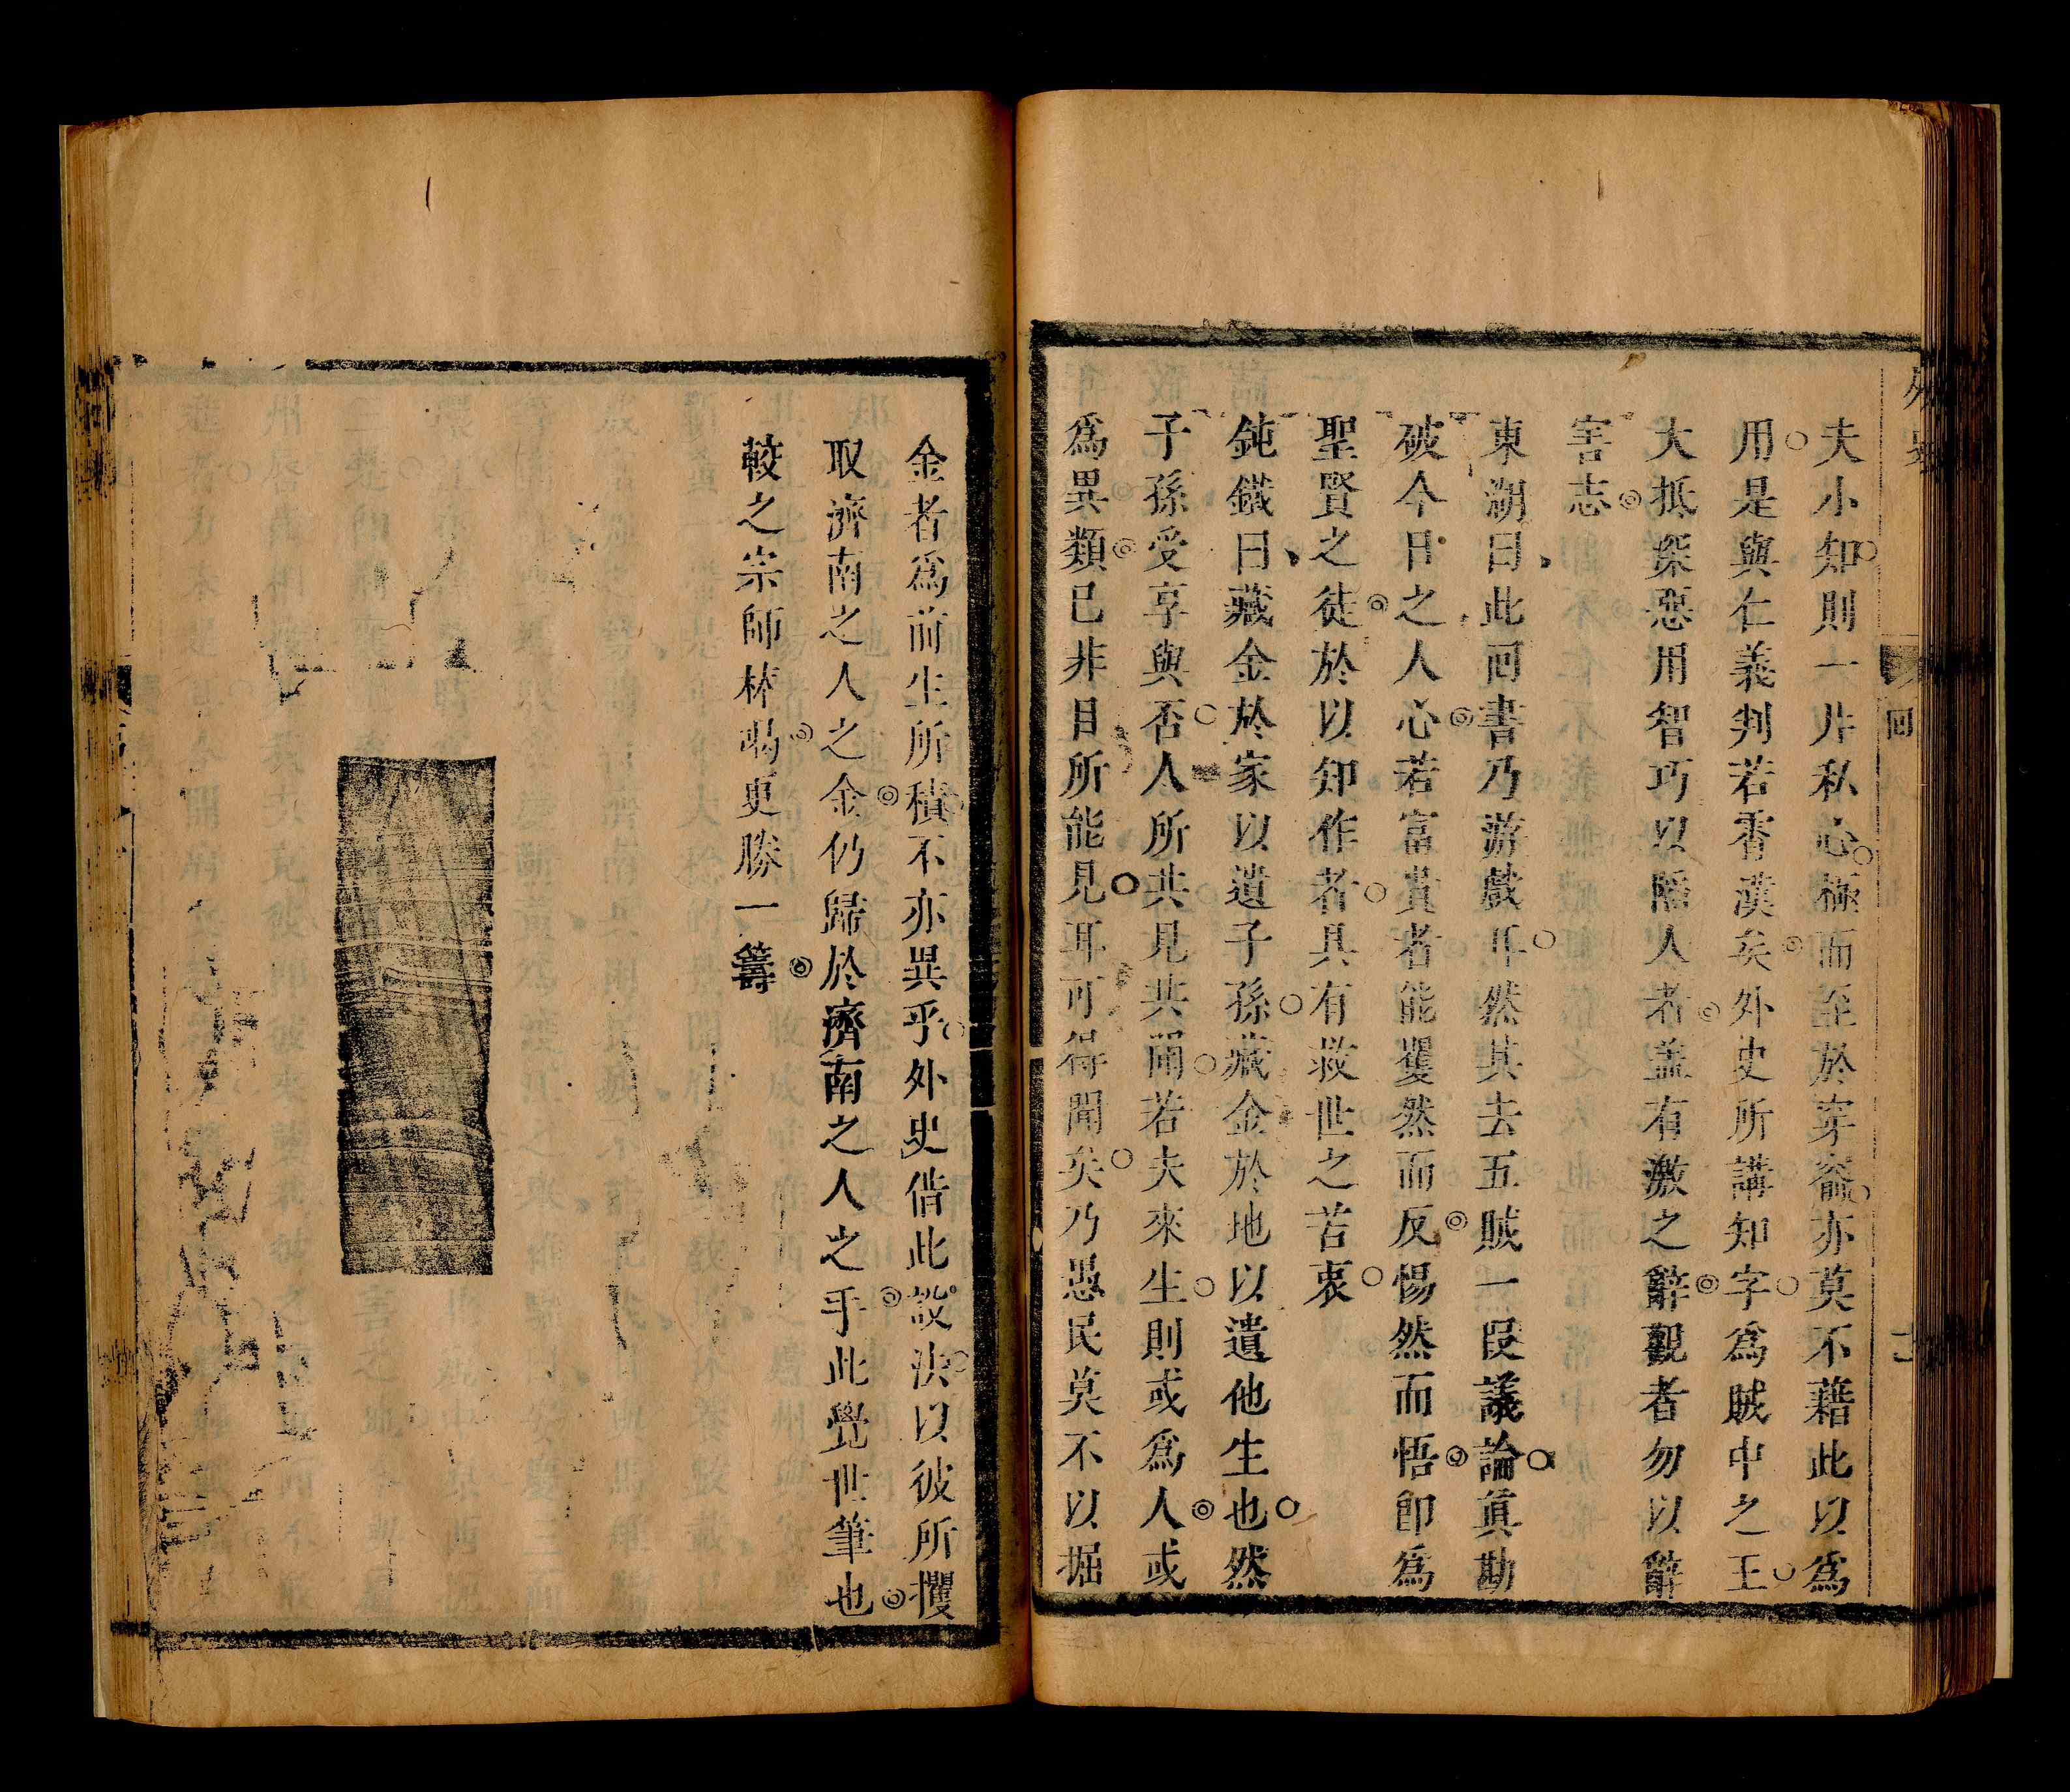 夫小知則一片私心極而至於穿窬亦莫不藉此以為
用是與仁義判若霄漢矣外史所講知字為賊中之王
大抵深惡用智巧以陷人者盖有激之辭觀者勿以辭
害志
東湖曰此回書乃游戲耳然其去五賊一段議論眞勘
破今日之人心若富貴者能矍然而反惕然而悟卽為
聖賢之徒於以知作者具有救世之苦衷
鈍鐵曰藏金於家以遺子孫藏金於地以遺他生也然
子孫受享與否人所共見共聞若夫來生則或為人或
為異類已非目所能見耳可得聞矣乃愚民莫不以掘
金者為前生所積不亦異乎外史借此設法以彼所攫
取濟南之人之金仍歸於濟南之人之手此覺世筆也
較之宗師棒喝更勝一籌